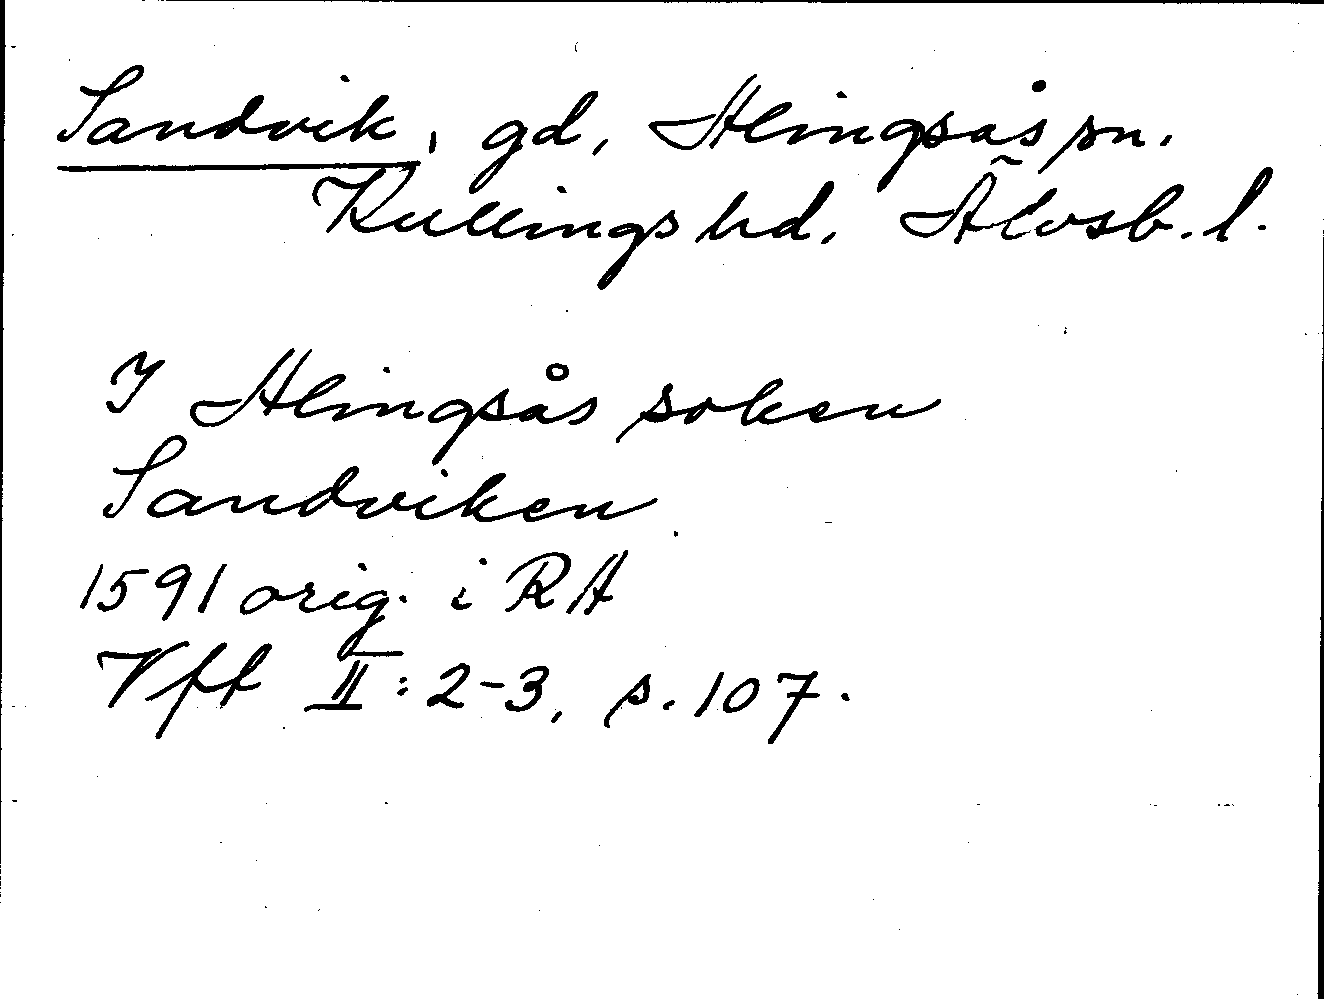 Sandvik, gd, Alingsås sn.
Kullings hd. Älvsb. l.
I Alingsås soken
Sandviken
1591 orig. i RA
Vff II: 2-3, s. 107.